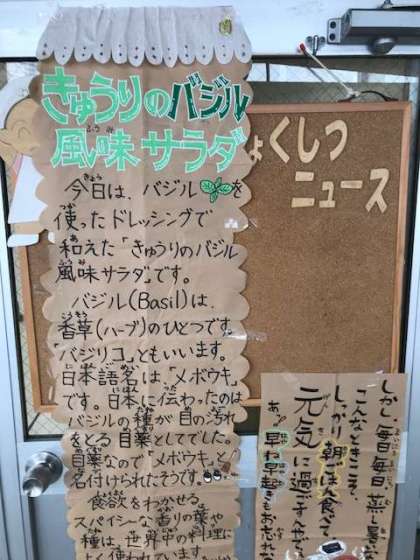 きゅうりのバジル
風味サラダ
今日は、バジルを
使ったドレッシングで
和えた「きゅうりのバジル
風味サラダ」です。
バジル(Basil)は、
香草(ハーブ)のひとつです。
「バジリコ」ともいいます。
日本語名は「メボウキ」
です。日本に伝わったのは
バジルの種が目の汚れ
をとる目薬としてでした。
目薬なので「メボウキ」と
名付けられたそうです。
食欲をわかせる
スパイシーな香りの葉や
種は、世界中の料理に
よく使われています
ょくしつ
ニュース
しかし毎日毎日蒸し暑
こんなときこそ、
しっかり朝ごはん食べて
元気に過ごそんや
あっ、早ね早起きもおわすれな